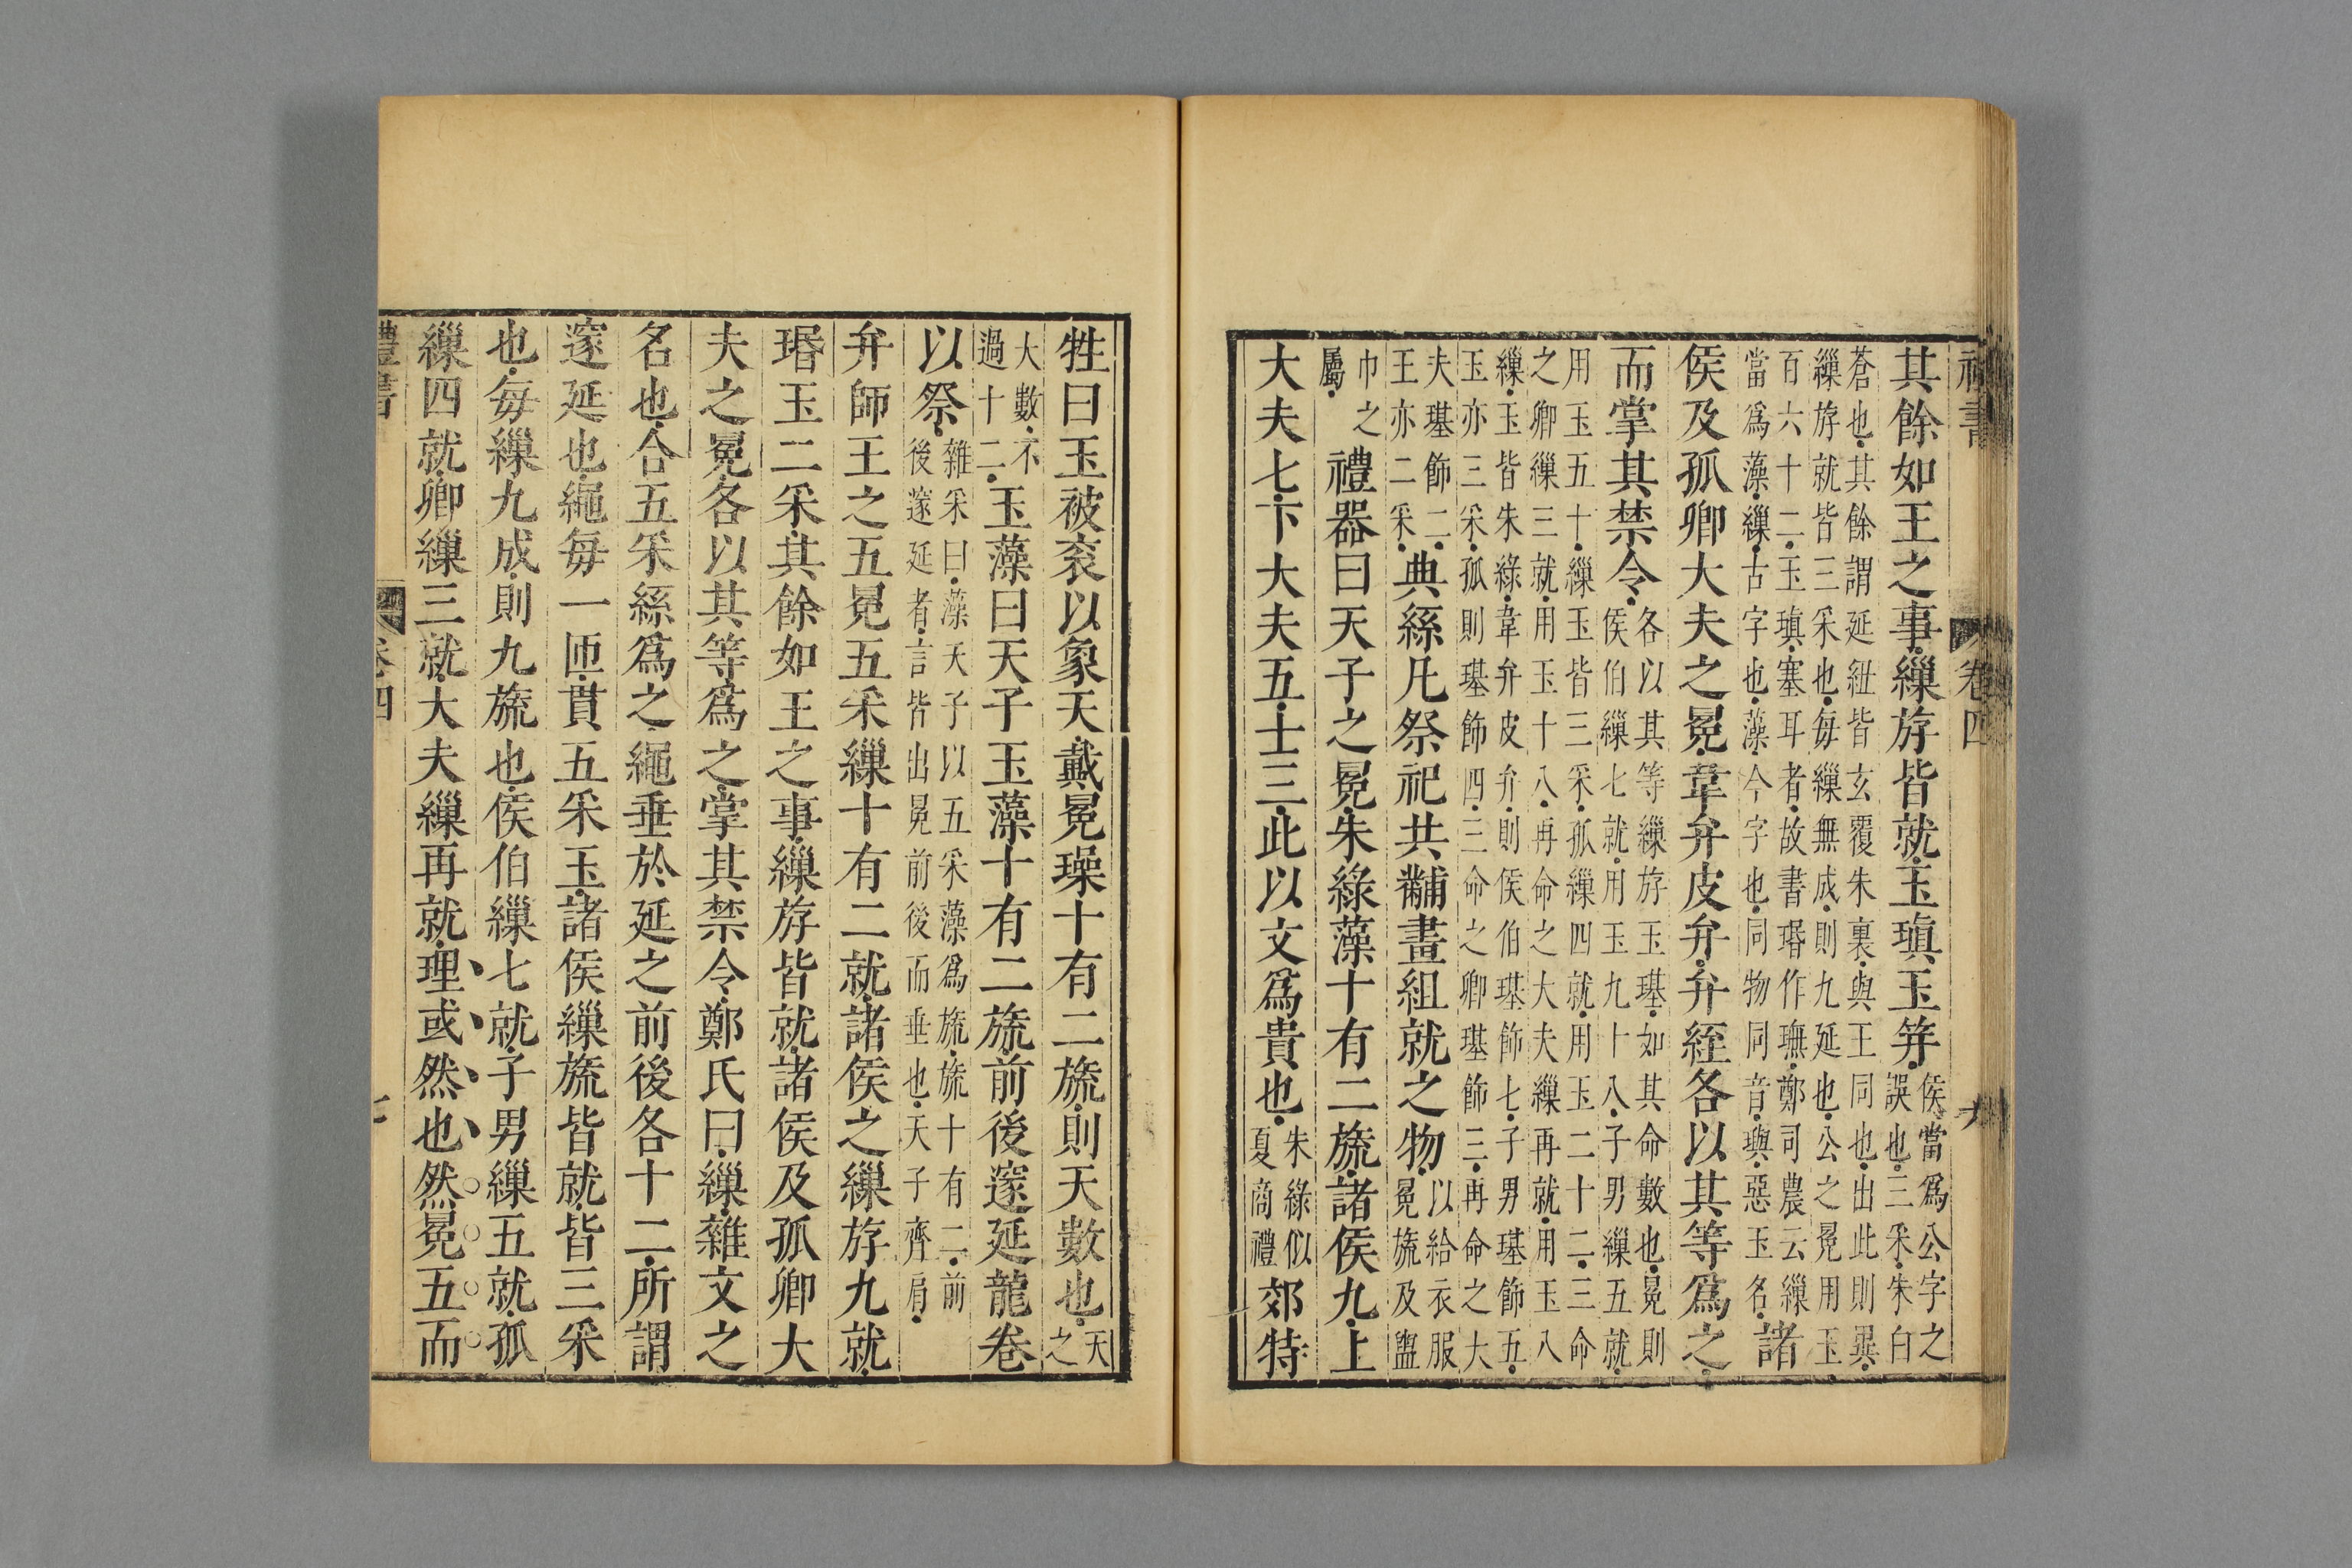 禮書 卷四 六
其餘如王之事繅斿皆就玉瑱玉笄侯當爲公字之誤也三采朱白
蒼也其餘謂延紐皆玄覆朱裏與王同也出此則異繅斿就皆三采也每繅無成則九延也公之冕用玉
百六十二玉瑱塞耳者故書瑉作璑鄭司農云繅當爲藻繅古字也藻今字也同物同音璵惡玉名諸
侯及孤卿大夫之冕韋弁皮弁弁絰各以其等爲之
而掌其禁令各以其等繅斿玉璂如其命數也冕則侯伯繅七就用玉九十八子男繅五就
用玉五十繅玉皆三采孤繅四就用玉二十二三命之卿繅三就用玉十八再命之大夫繅再就用玉八
繅玉皆朱綠韋弁皮弁則侯伯璂飾七子男璂飾五玉亦三采孤則璂飾四三命之卿璂飾三再命之大
夫璂飾二王亦二采典絲凡祭祀共黼畫組就之物以給衣服冕旒及盥
巾之屬禮器曰天子之冕朱綠藻十有二旒諸侯九上
大夫七下大夫五士三此以文爲貴也朱綠似夏商禮郊特
牲曰玉被衮以象天戴冕璪十有二旒則天數也天之
大數不過十二玉藻曰天子玉藻十有二旒前後邃延龍卷
以祭雜采曰藻天子以五采藻爲旒旒十有二前後邃延者言皆出冕前後而垂也天子齊肩
弁師王之五冕五采繅十有二就諸侯之繅斿九就
瑉玉二采其餘如王之事繅斿皆就諸侯及孤卿大
夫之冕各以其等爲之掌其禁令鄭氏曰繅雜文之
名也合五采絲爲之繩垂於延之前後各十二所謂
邃延也繩每一匝貫五采玉諸侯繅旒皆就皆三采
也每繅九成則九旒也侯伯繅七就子男繅五就孤
繅四就卿繅三就大夫繅再就理或然也然冕五而
禮書 卷四 七